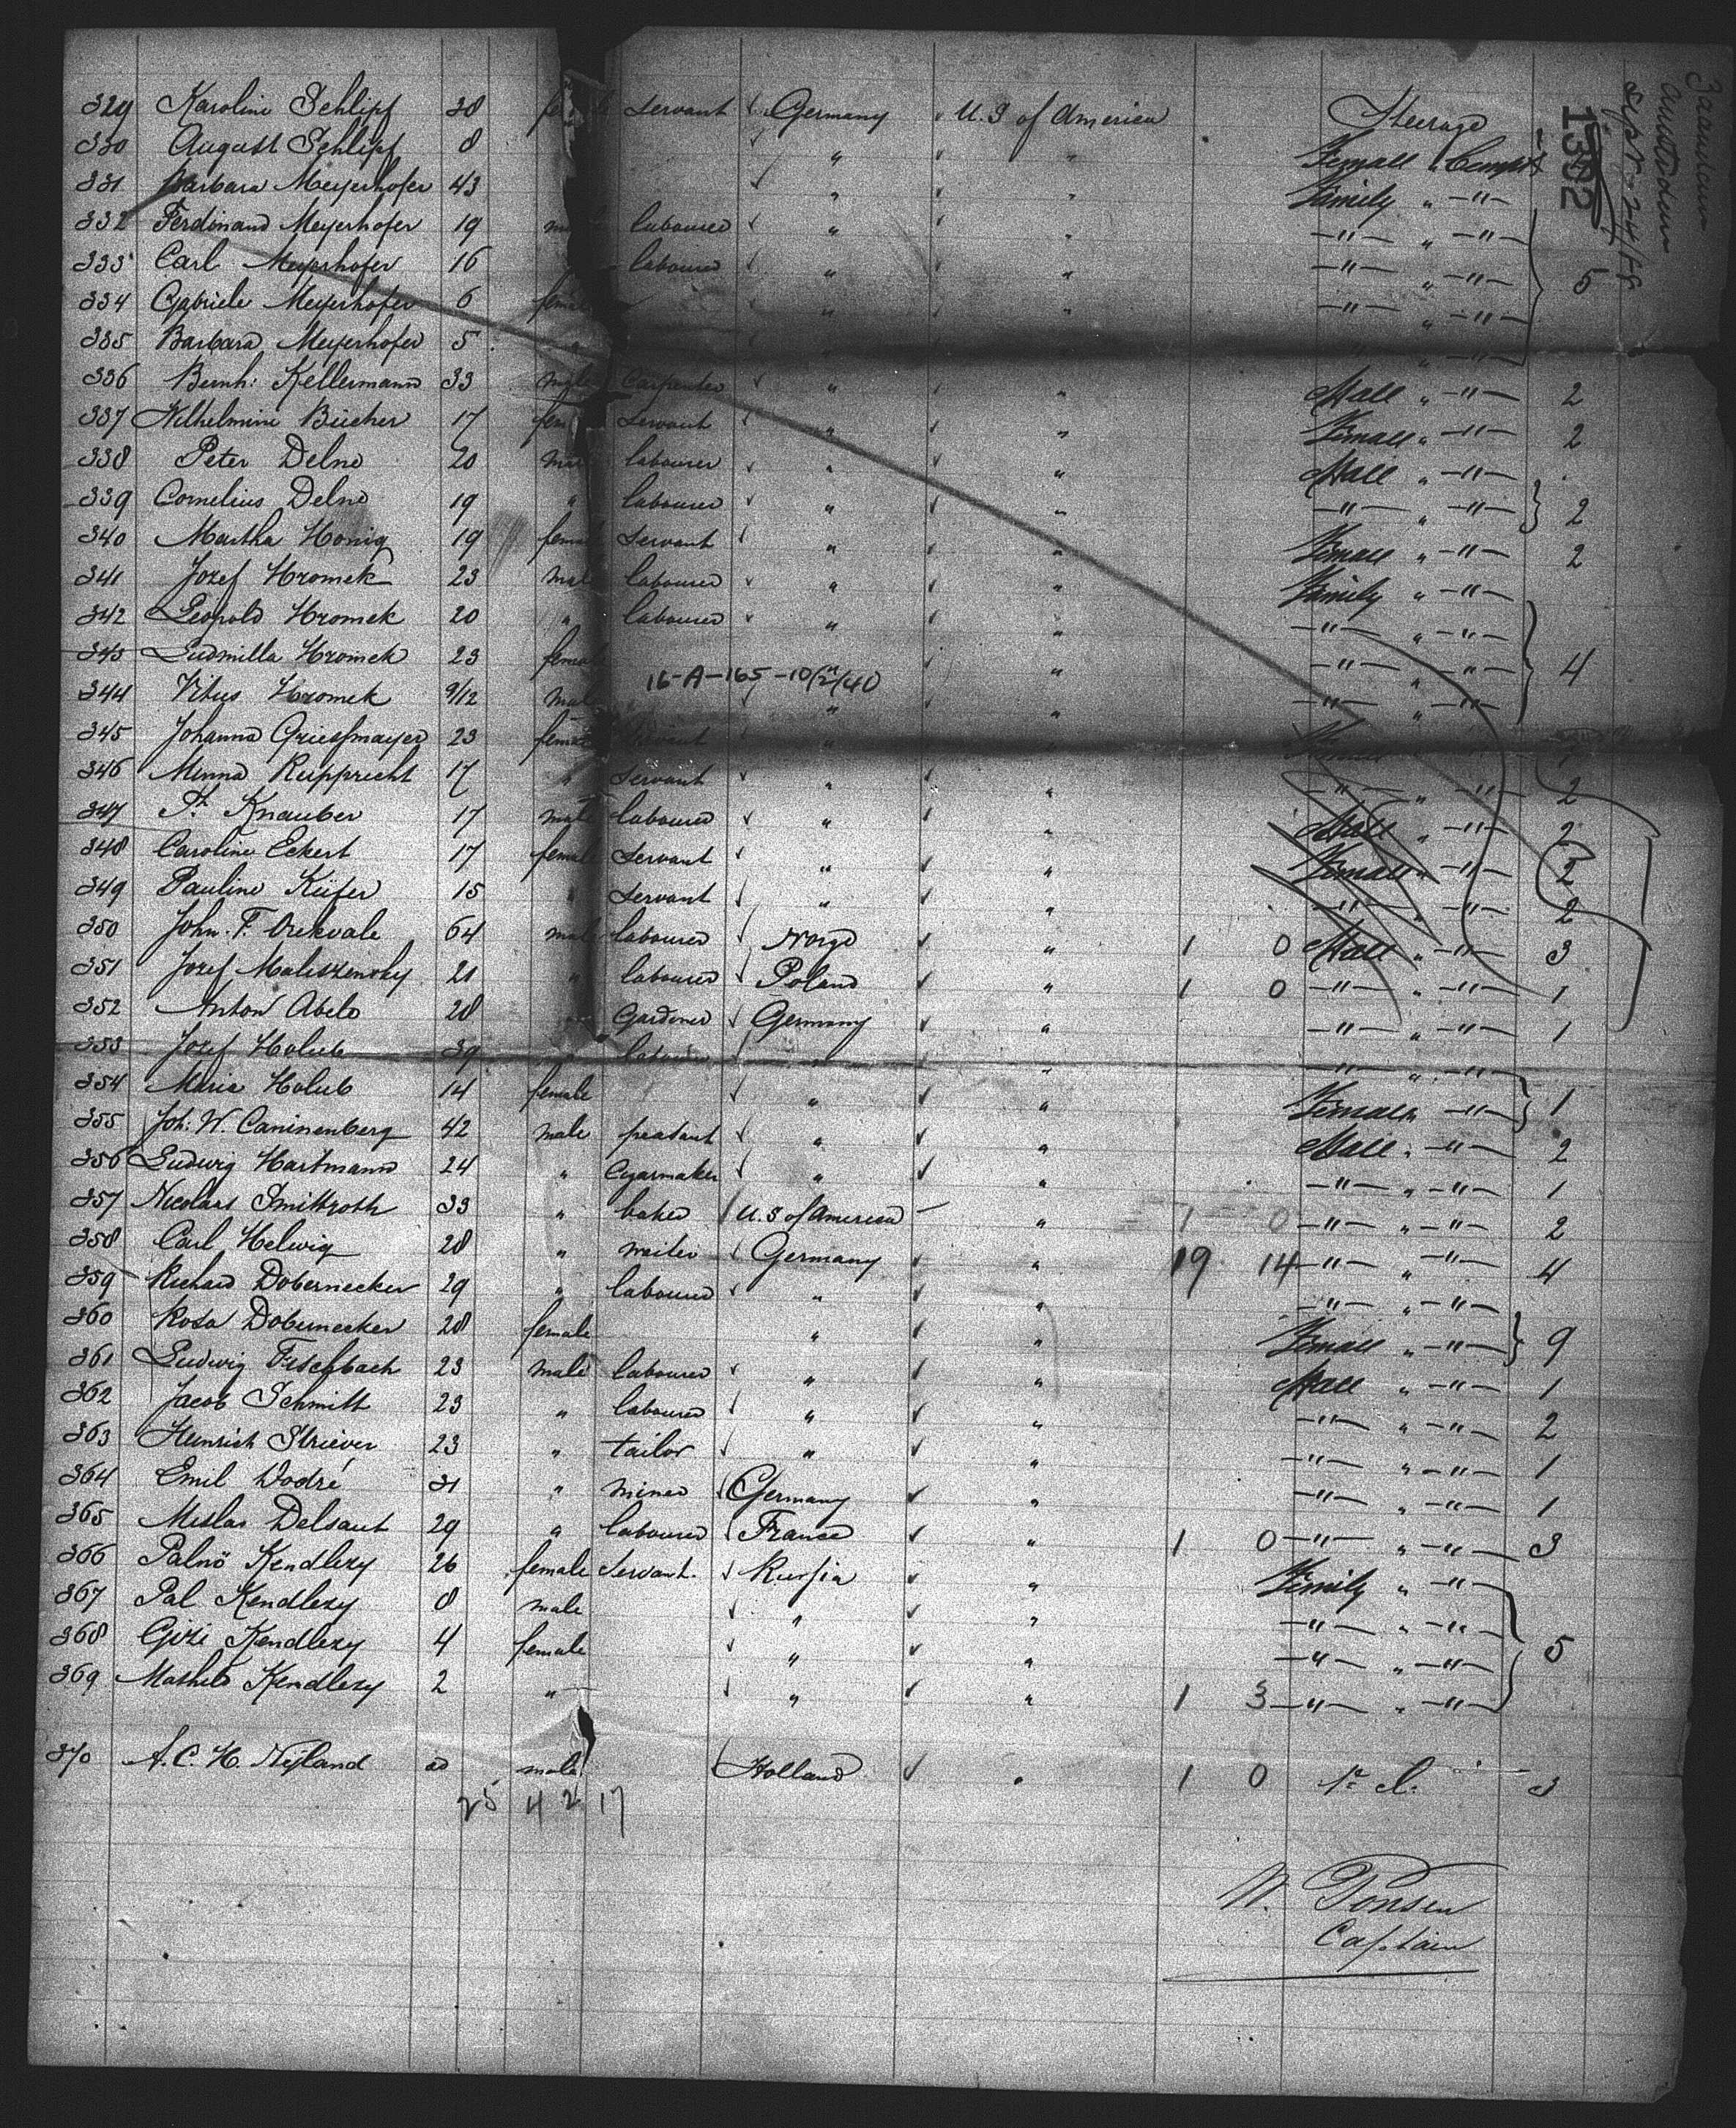 Zaandam
Amsterdam
Sept. 24/88
1392
329 Karoline Schlipf 38 fe servant Germany U.S of America Steerage
330 August Schlipf 8 " " Female Compt
331 Barbara Meyerhofer 43 " " Family " —"—
332 Ferdinand Meyerhofer 19 ma labourer " " —"— " —"—
333 Carl Meyerhofer 16 labourer " " —"— " —"— 5
334 Gabriele Meyerhofer 6 fema " " —"— " —"—
335 Barbara Meyerhofer 5 " " —"—
336 Bernh: Kellermann 33 male Carpenter " " Male " —"— 2
337 Wilhelmine Bücher 17 fem servant " " Female " —"— 2
338 Peter Delno 20 ma labourer " " Male " —"—
339 Cornelius Delno 19 " labourer " " —"— " —"— 2
340 Martha Honig 19 fema servant " " Female " —"— 2
341 Jozef Hromek 23 mal labourer " " Family " —"—
342 Leopold Hromek 20 " labourer " " —"— " —"—
343 Ludmilla Hromek 23 femal " —"— " —"— 4
16-A-165-10/2/40
344 Vitus Hromek 9/12 mal " " —"— " —"—
345 Johanna Griessmayer 23 femal servant " "
346 Minna Rupprecht 17 " servant " " —"— " —"— 2
347 Ph Knauber 17 male labourer " " Male " —"— 2
348 Caroline Eckert 17 female servant " " Female " —"— 2
349 Pauline Küfer 15 " servant " " —"— " —"— 2
350 John. F. Orekvale 64 male labourer Norge " 1 0 Male " —"— 3
351 Jozef Maliszensky 21 " labourer Poland " 1 0 —"— " —"— 1
352 Anton Abele 28 " Gardener Germany " —"— " —"— 1
353 Jozef Holub 39 " labourer " " —"— " —"—
354 Maria Holub 14 female " " Female " —"— 1
355 Joh: W. Caninenberg 42 male peasant " " Male " —"— 2
356 Ludwig Hartmann 24 " Cigarmaker " " —"— " —"— 1
357 Nicolaas Smittroth 33 " baker U.S of America " 1 0 —"— " —"— 2
358 Carl Helwig 28 " waiter Germany " 19 14 —"— " —"— 4
359 Richard Dobernecker 29 " labourer " " —"— " —"—
360 Rosa Dobernecker 28 female " " Female " —"— 9
361 Ludwig Fischbach 23 male labourer " " Male " —"— 1
362 Jacob Schmitt 23 " labourer " " —"— " —"— 2
363 Heinrich Striever 23 " tailor " " —"— " —"— 1
364 Emil Dodré 31 " miner Germany " —"— " —"— 1
365 Mislar Delsaut 29 " labourer France " 1 0 —"— " —"— 3
366 Palnö Kendlezy 26 female Servant. Russia " Family " —"—
367 Pal Kendlezy 8 male " " —"— " —"—
368 Gizi Kendlezy 4 female " " —"— " —"— 5
369 Mathild Kendlezy 2 " " " 1 3 —"— " —"—
370 A. C. H. Nijland ad male Holland " 1 0 1e cl. 3
25 4 2 17
W. Ponsen
Captain